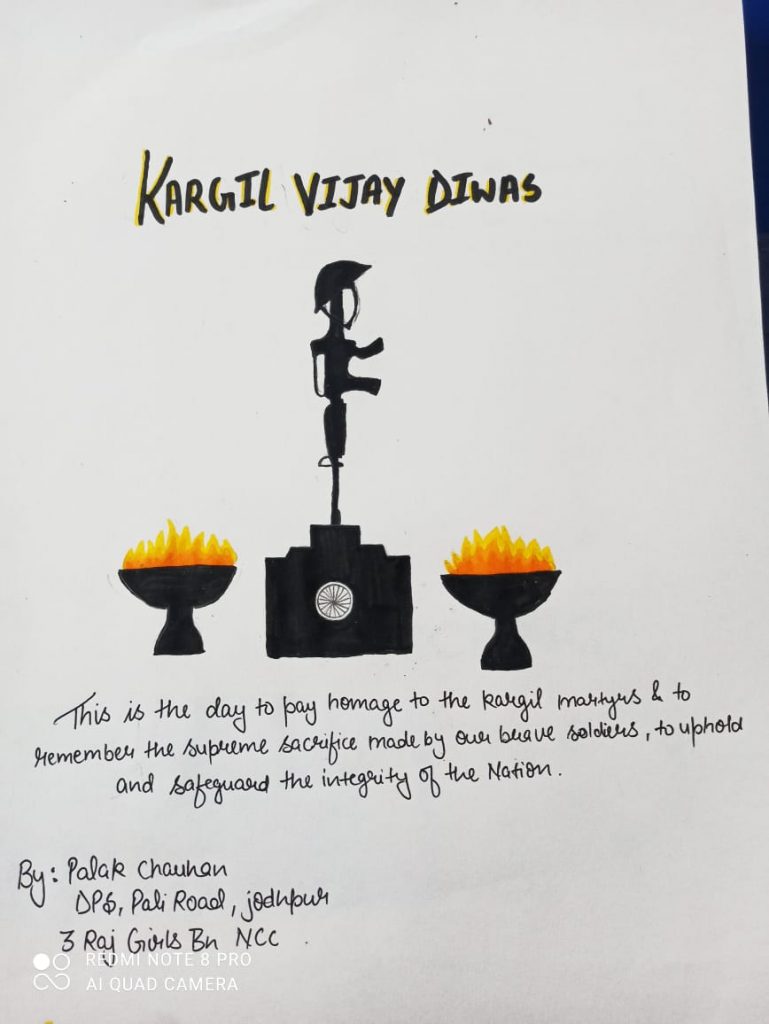 KARGIL VIJAY DIWAS
This is the day to pay homage to the kargil martyrs & to
remember the supreme sacrifice made by our brave soldiers, to uphold
and safeguard the integrity of the Nation.
By: Palak Chauhan
DPS, Pali Road, jodhpur
3 Raj Girls Bn NCC.
REDMI NOTE 8 PRO
AI QUAD CAMERA